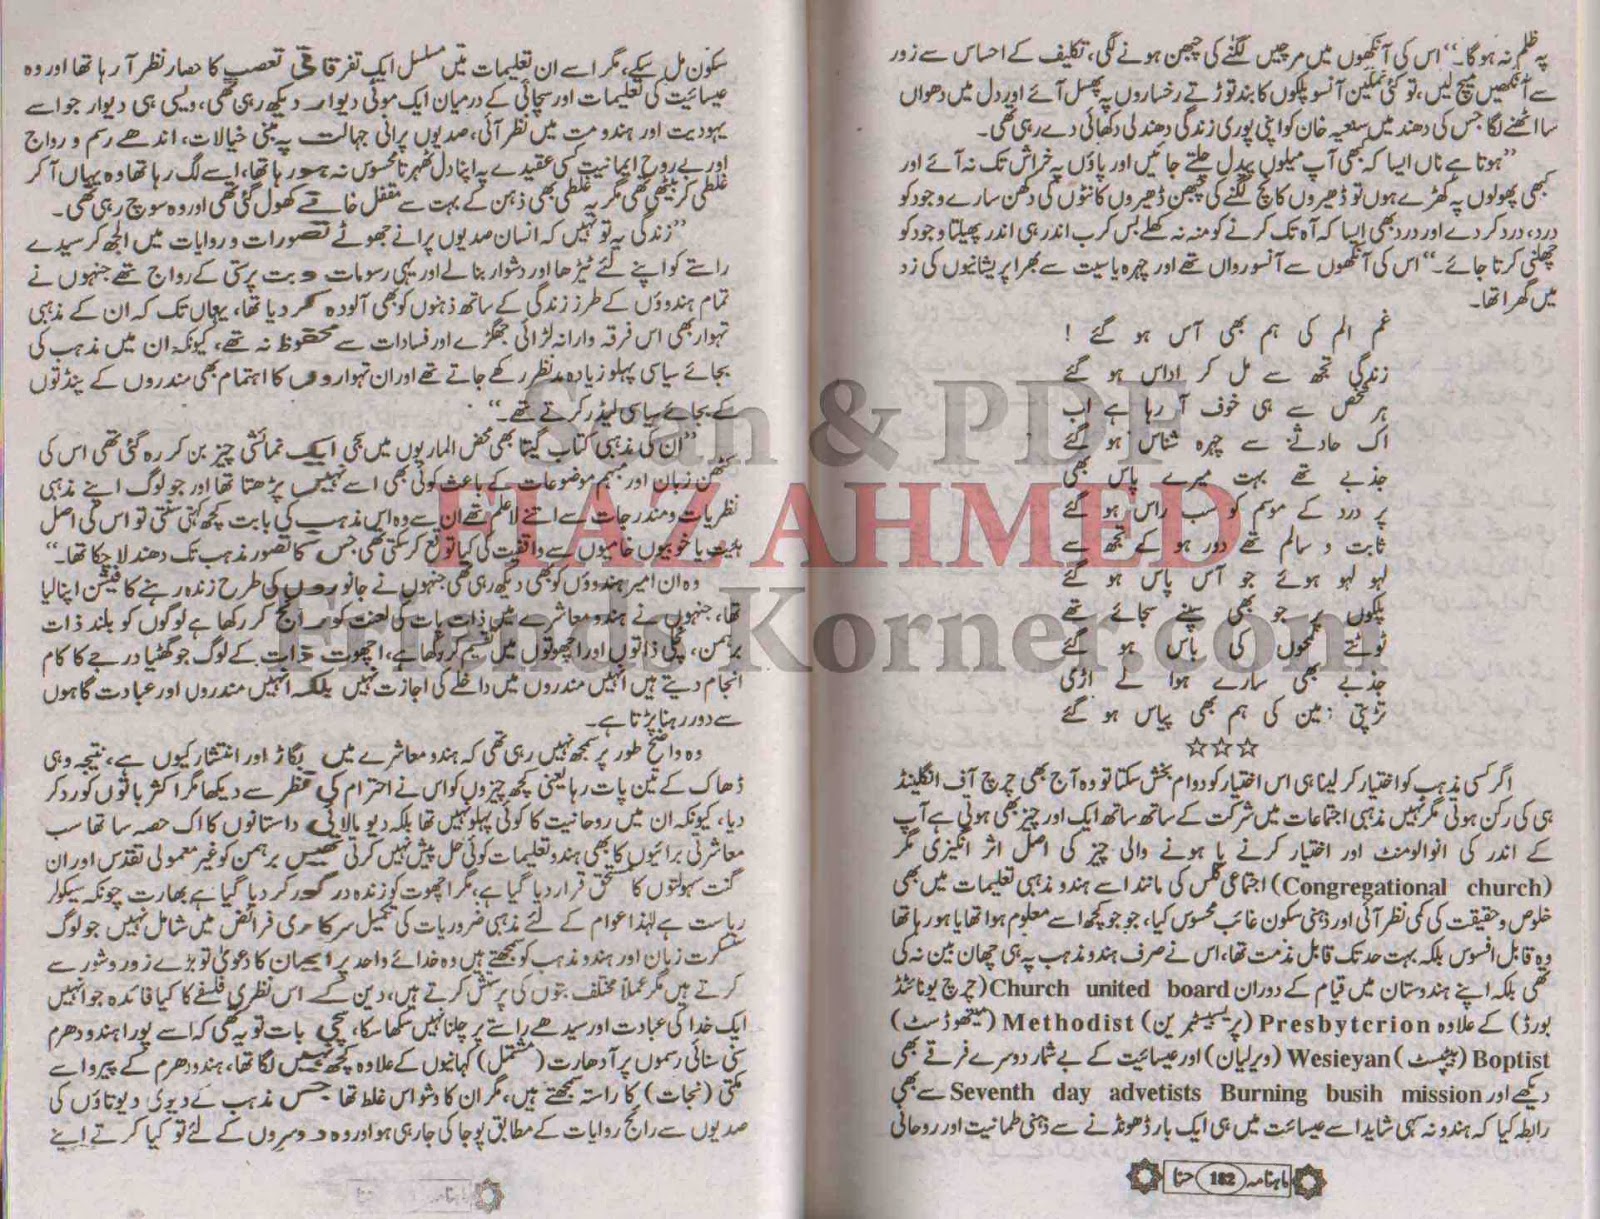 پہ ظلم نہ ہوگا۔“ اس کی آنکھوں میں مرچیں لگنے کی چبھن ہونے لگی، تکلیف کے احساس سے زور
سے آنکھیں میچ لیں، تو کئی نمکین آنسو پلکوں کا بند توڑتے رخساروں پہ پھسل آئے اور دل میں دھواں
سا اٹھنے لگا جس کی دھند میں سنعیہ خان کو اپنی پوری زندگی دھندلی دکھائی دے رہی تھی۔
”ہوتا ہے ناں ایسا کہ کبھی آپ میلوں پیدل چلتے جائیں اور پاؤں پہ خراش تک نہ آئے اور
کبھی پھولوں پہ کھڑے ہوں تو ڈھیروں کانچ لگنے کی چبھن ڈھیروں کانٹوں کی دکھن سارے وجود کو
درد، درد کر دے اور درد بھی ایسا کہ آہ تک کرنے کو منہ نہ کھلے بس کرب اندر ہی اندر پھیلتا وجود کو
چھلنی کرتا جائے۔“ اس کی آنکھوں سے آنسو رواں تھے اور چہرہ یاسیت سے بھرا پریشانیوں کی زد
میں گھرا تھا۔
غم الم کی ہم بھی آس ہو گئے !
زندگی تجھ سے مل کر اداس ہو گئے
ہر شخص سے ہی خوف آ رہا ہے اب
اک حادثے سے چہرہ شناس ہو گئے
جذبے تھے بہت میرے پاس بھی
پر درد کے موسم کو سب راس ہو گئے
ثابت و سالم تھے دور ہو کے تجھ سے
لہو لہو ہوئے جو آس پاس ہو گئے
پلکوں پر جو بھی سپنے سجائے تھے
ٹوٹتے لمحوں کی باس ہو گئے
جذبے بھی سارے ہوا لے اڑی
تڑپتی زمین کی ہم بھی پیاس ہو گئے
☆☆☆
اگر کسی مذہب کو اختیار کر لینا ہی اس اختیار کو دوام بخش سکتا تو وہ آج بھی چرچ آف انگلینڈ
ہی کی رکن ہوتی مگر نہیں مذہبی اجتماعات میں شرکت کے ساتھ ساتھ ایک اور چیز بھی ہوتی ہے آپ
کے اندر کی انوالومنٹ اور اختیار کرنے یا ہونے والی چیز کی اصل اثر انگیزی مگر
(Congregational church) اجتماعی کلس کی مانند اسے ہندو مذہبی تعلیمات میں بھی
خلوص و حقیقت کی کمی نظر آئی اور ذہنی سکون غائب محسوس کیا، جو جو کچھ اسے معلوم ہوا تھا یا ہو رہا تھا
وہ قابل افسوس بلکہ بہت حد تک قابل مذمت تھا، اس نے صرف ہندو مذہب پہ ہی چھان بین نہ کی
تھی بلکہ اپنے ہندوستان میں قیام کے دوران Church united board (چرچ یونائٹڈ
بورڈ) کے علاوہ Presbytcrion (پریسبیٹیرین) Methodist (میتھوڈسٹ)
Boptist (بپٹسٹ) Wesieyan (ویزلیان) اور عیسائیت کے بے شمار دوسرے فرقے بھی
دیکھے اور Seventh day advetists Burning busih mission سے بھی
رابطہ کیا کہ ہندو نہ سہی شاید اسے عیسائت میں ہی ایک بار ڈھونڈنے سے ذہنی طمانیت اور روحانی
ماہنامہ 182 حنا
سکون مل سکے، مگر اسے ان تعلیمات میں مسلسل ایک تفرقاتی تعصب کا حصار نظر آ رہا تھا اور وہ
عیسائیت کی تعلیمات اور سچائی کے درمیان ایک موٹی دیوار دیکھ رہی تھی، ویسی ہی دیوار جو اسے
یہودیت اور ہندو مت میں نظر آئی، صدیوں پرانی جہالت پہ مبنی خیالات، اندھے رسم و رواج
اور بے روح ایمانیت کی عقیدے پہ اپنا دل ٹھہرتا محسوس نہ ہو رہا تھا، اسے لگ رہا تھا وہ یہاں آ کر
غلطی کر بیٹھی تھی مگر یہ غلطی بھی ذہن کے بہت سے مقفل خانے کھول گئی تھی اور وہ سوچ رہی تھی۔
”زندگی یہ تو نہیں کہ انسان صدیوں پرانے جھوٹے تصورات و روایات میں الجھ کر سیدھے
راستے کو اپنے لئے ٹیڑھا اور دشوار بنا لے اور یہی رسومات و بت پرستی کے رواج تھے جنہوں نے
تمام ہندوؤں کے طرز زندگی کے ساتھ ذہنوں کو بھی آلودہ کر دیا تھا، یہاں تک کہ ان کے مذہبی
تہوار بھی اس فرقہ وارانہ لڑائی جھگڑے اور فسادات سے محفوظ نہ تھے، کیونکہ ان میں مذہب کی
بجائے سیاسی پہلو زیادہ مدنظر رکھے جاتے تھے اور ان تہواروں کا اہتمام بھی مندروں کے پنڈتوں
کے بجائے سیاسی لیڈر کرتے تھے۔“
”ان کی مذہبی کتاب گیتا بھی محض الماریوں میں سجی ایک نمائشی چیز بن کر رہ گئی تھی اس کی
کٹھن زبان اور مبہم موضوعات کے باعث کوئی بھی اسے نہیں پڑھتا تھا اور جو لوگ اپنے مذہبی
نظریات و مندرجات سے اتنے لاعلم تھے ان سے وہ اس مذہب کی بابت کچھ کہتی سنتی تو اس کی اصل
ہیت یا خوبیوں خامیوں سے واقفیت کی کیا توقع کر سکتی تھی جس کا تصور مذہب تک دھندلا چکا تھا۔“
وہ ان امیر ہندوؤں کو بھی دیکھ رہی تھی جنہوں نے جانوروں کی طرح زندہ رہنے کا فیشن اپنا لیا
تھا، جنہوں نے ہندو معاشرے میں ذات پات کی لعنت کو رائج کر رکھا ہے لوگوں کو بلند ذات
برہمن، نچلی ذاتوں اور اچھوتوں میں تقسیم کر رکھا ہے، اچھوت ذات کے لوگ جو گھٹیا درجے کا کام
انجام دیتے ہیں انہیں مندروں میں داخلے کی اجازت نہیں بلکہ انہیں مندروں اور عبادت گاہوں
سے دور رہنا پڑتا ہے۔
وہ واضح طور پر سمجھ نہیں رہی تھی کہ ہندو معاشرے میں بگاڑ اور انتشار کیوں ہے، نتیجہ وہی
ڈھاک کے تین پات رہا یعنی کچھ چیزوں کو اس نے احترام کی نظر سے دیکھا مگر اکثر باتوں کو رد کر
دیا، کیونکہ ان میں روحانیت کا کوئی پہلو نہیں تھا بلکہ دیو مالائی داستانوں کا اک حصہ سا تھا سب
معاشرتی برائیوں کا بھی ہندو تعلیمات کوئی حل پیش نہیں کرتی تھیں برہمن کو غیر معمولی تقدس اور ان
گنت سہولتوں کا مستحق قرار دیا گیا ہے، مگر اچھوت کو زندہ در گور کر دیا گیا ہے بھارت چونکہ سیکولر
ریاست ہے لہٰذا عوام کے لئے مذہبی ضروریات کی تکمیل سرکاری فرائض میں شامل نہیں جو لوگ
سنسکرت زبان اور ہندو مذہب کو سمجھتے ہیں وہ خدائے واحد پر ایمان کا دعویٰ تو بڑے زور و شور سے
کرتے ہیں مگر عملاً مختلف بتوں کی پرستش کرتے ہیں، دین کے اس نظری فلسفے کا کیا فائدہ جو انہیں
ایک خدا کی عبادت اور سیدھے راستے پر چلنا نہیں سکھا سکا، سچی بات تو یہ تھی کہ اسے پورا ہندو دھرم
سنی سنائی رسموں پر آدھارت (مشتمل) کہانیوں کے علاوہ کچھ نہیں لگا تھا، ہندو دھرم کے پیرو اسے
مکتی (نجات) کا راستہ سمجھتے ہیں، مگر ان کا دشواس غلط تھا جس مذہب کے دیوی دیوتاؤں کی
صدیوں سے رائج روایات کے مطابق پوجا کی جا رہی ہو اور وہ دوسروں کے لئے تو کیا کرتے اپنے
Scan & PDF
FIAZ AHMED
Friends Korner.com